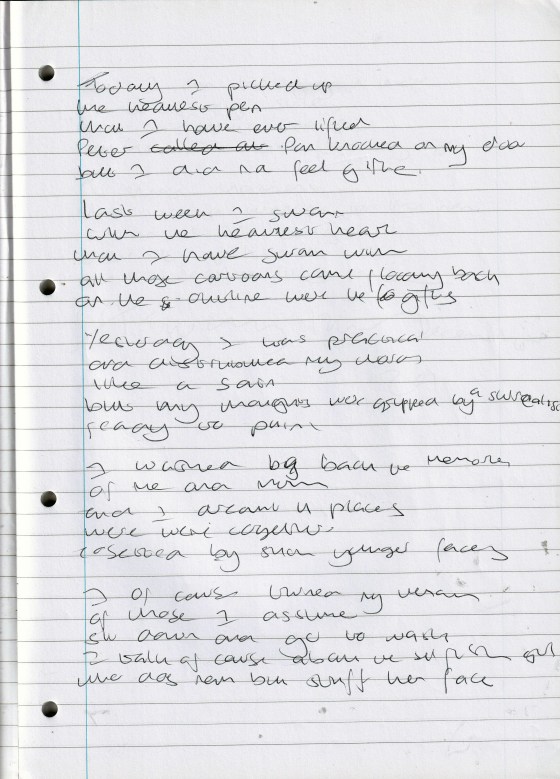 Today I picked up
the heaviest pen
that I have ever lifted
Peter called at Pan knocked on my door
but I did na feel gifte.
Last week I swam
with the heaviest heart
that I have swam with
all those cartoons came flooding back
on the outline were the gifts
Yesterday I was practical
and distributed my words
like a Saint
but my thoughts were gripped by a surrealist
ready to paint
I washed by back the memories
of me and him
and I dreamt of places
we're were together
by such younger faces
I of cause turned my
of those I assume
sit down and go to work
I talk of cause about the selfish girl
who does nothin but stuff her face